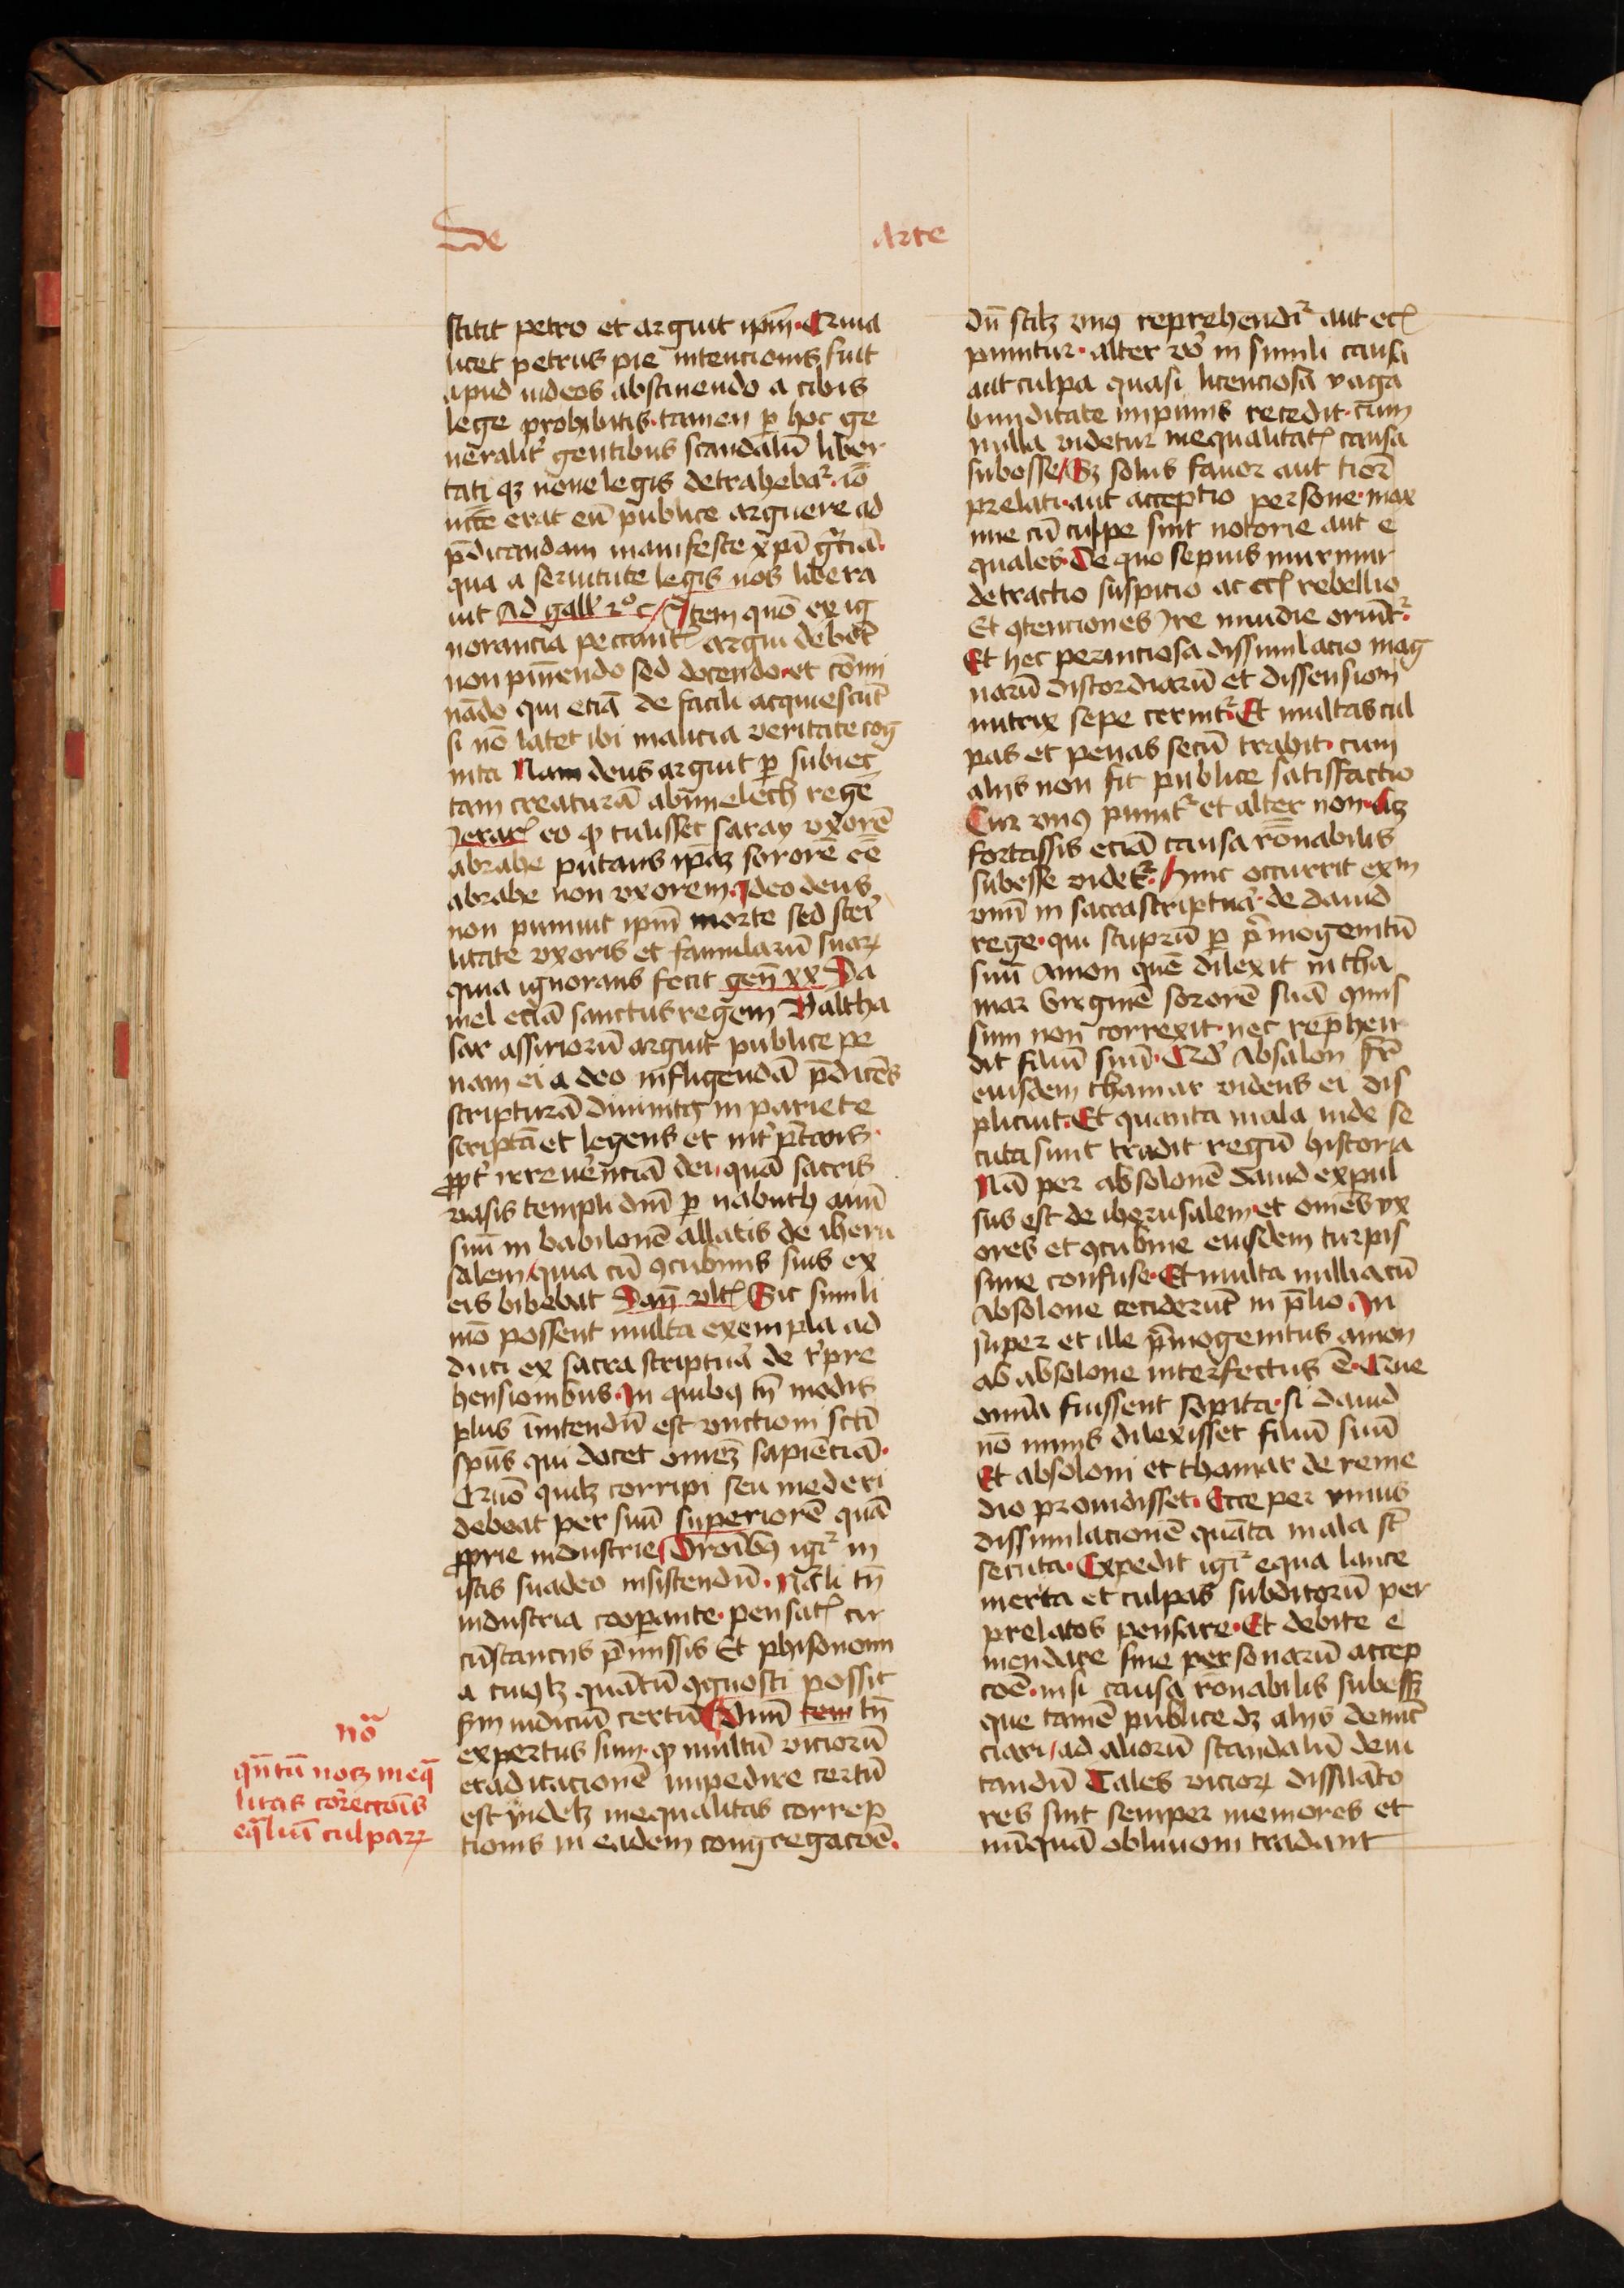 De arte
stitit petro et arguit ipm̄. Quia
licet petrus pie intencionis fuit
apud iudeos abstinendo a cibis
lege prohibitis. tamen ꝑ hoc ge
neralit᷑ gentibus scandalū liber
tati qꝫ noue legis detrahebat᷑. iō
nēcē erat eū publice arguere ad
p̄dicandam manifeste xp̄i gr̄ciā.
qua a seruitute legis nos libera
uit Ad gall᷑ 2º c / Item quō ex ig
norancia peccant᷑ argui debēt
non puniendo sed docendo. et cōmi
nādo qui eciā de facili acquiescūt
si nō latet ibi malicia veritate cog
nita Nam deus arguit ꝑ subiec
tam creaturā abimelech regē
Jerar᷑ eo ꝙ tulisset saray vxorē
abrahe putans ip̄aꝫ sororē eē
abrahe non vxorem. Ideo deus
non puniuit ipm̄ morte sed steri
litate vxoris et famularū suaꝝ
quia ignorans fecit gen̄ xx Da
niel eciā sanctus regem Baltha
sar assiriorū arguit publice pe
nam ei a deo infligendā p̄dicēs
scripturā diuinitꝰ in pariete
scriptā et legens et int᷑p̄tans.
ꝓpt᷑ irreuerenciā dei. quā sacris
vasis templi dn̄i ꝑ nabuch auū
suū in babilonē allatis de iheru
salem / quia cū ꝯcubinis suis ex
eis bibebat Dan̄ vlt᷑ Sic simili
mō possent multa exempla ad
duci ex sacra scriptura de repre
hensionibus. In quibꝰ tn̄ modis
plus īnitendū est vnctioni sctī
spūs qui docet omēꝫ sapienciā.
Quō quilꝫ corripi seu mederi
debeat per suū superiorē quā
ꝓprie industrie / Oroibꝰ igit᷑ in
istis suadeo insistendū. Nāli tn̄
industria cooperante. pensat᷑ cir
cūstancijs p̄missis Et phisonomi
a cuiꝰlꝫ quātū ꝯgnosci possit
scdm̄ iudiciū certū Edm̄ tem tn̄
expertus sum. ꝙ multū viciorū
eradicacionē impedire certū
est videlꝫ inequalitas correp
tionis in eadem congregacoē.
nō
qn̄tū nocꝫ ineq̄
litas correctiōis
eq̄liū culpaꝝ
dū scilꝫ vnꝰ reprehendit᷑ aut ec᷑
punitur. alter vō in simili causa
aut culpa quasi licenciosa vaga
bunditate impunis recedit. cum
nulla videtur inequalitat᷑ causa
subesse / Sꝫ solus fauor aut tior̄
prelati. aut acceptio persone. max
ime cū culpe sint notorie aut e
quales. De quo sepius murmur
detractio suspicio ac ec᷑ rebellio
Et ꝯtenciones Ire inuidie oriūt᷑.
Et hec perniciosa dissimilacio mag
narū discordiarū et dissensionū
nutrix sepe cernit᷑. Et multas cul
pas et penas secū trahit. cum
alijs non fit publice satisfactio
Cur vnꝰ punit᷑ et alter non. Lꝫ
fortassis eciā causa rōnabilis
subesse videt᷑. Hinc occurrit exm̄
vnū in sacra scriptura. de dauid
rege. qui stuprū ꝑ p̄mogenitū
suū Amon quē dilexit in tha
mar virginē sororē suā ꝯmis
sum non correxit. nec reprehen
dit filiū suū. Qd᷑ Absalon fr̄
eiusdem thamar videns ei dis
plicuit. Et quanta mala inde se
cuta sunt tradit regū historia
Nā per absolonē dauid expul
sus est de iherusalem. et omēs vx
ores et ꝯcubine eiusdem turpis
sime confuse. Et multa millia cū
Absolone ceciderūt in p̄lio. In
super et ille p̄mogenitus amon
ab absolone interfectus ē. Que
omīa fuissent sopita. si dauid
nō nimis dilexisset filiū suū
Et absoloni et thamar de reme
dio prouidisset. Ecce per vnius
dissimulacionē quāta mala sūt
secuta. Expedit igit᷑ equa lance
merita et culpas subditorū per
prelatos pensare. Et debite e
mendare sine personarū accep
coē. nisi causa rōnabilis subess&
que tamē publice dꝫ alijs denūt
ciari / ad aliorū scandalū deui
tandū Tales vicioꝝ dissilāto
res sint semper memores et
nūquā obliuioni tradant